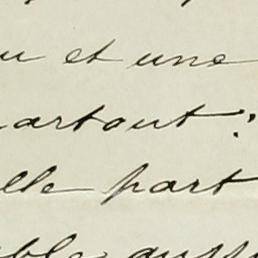 u et une
artout :
lle part
able aussi